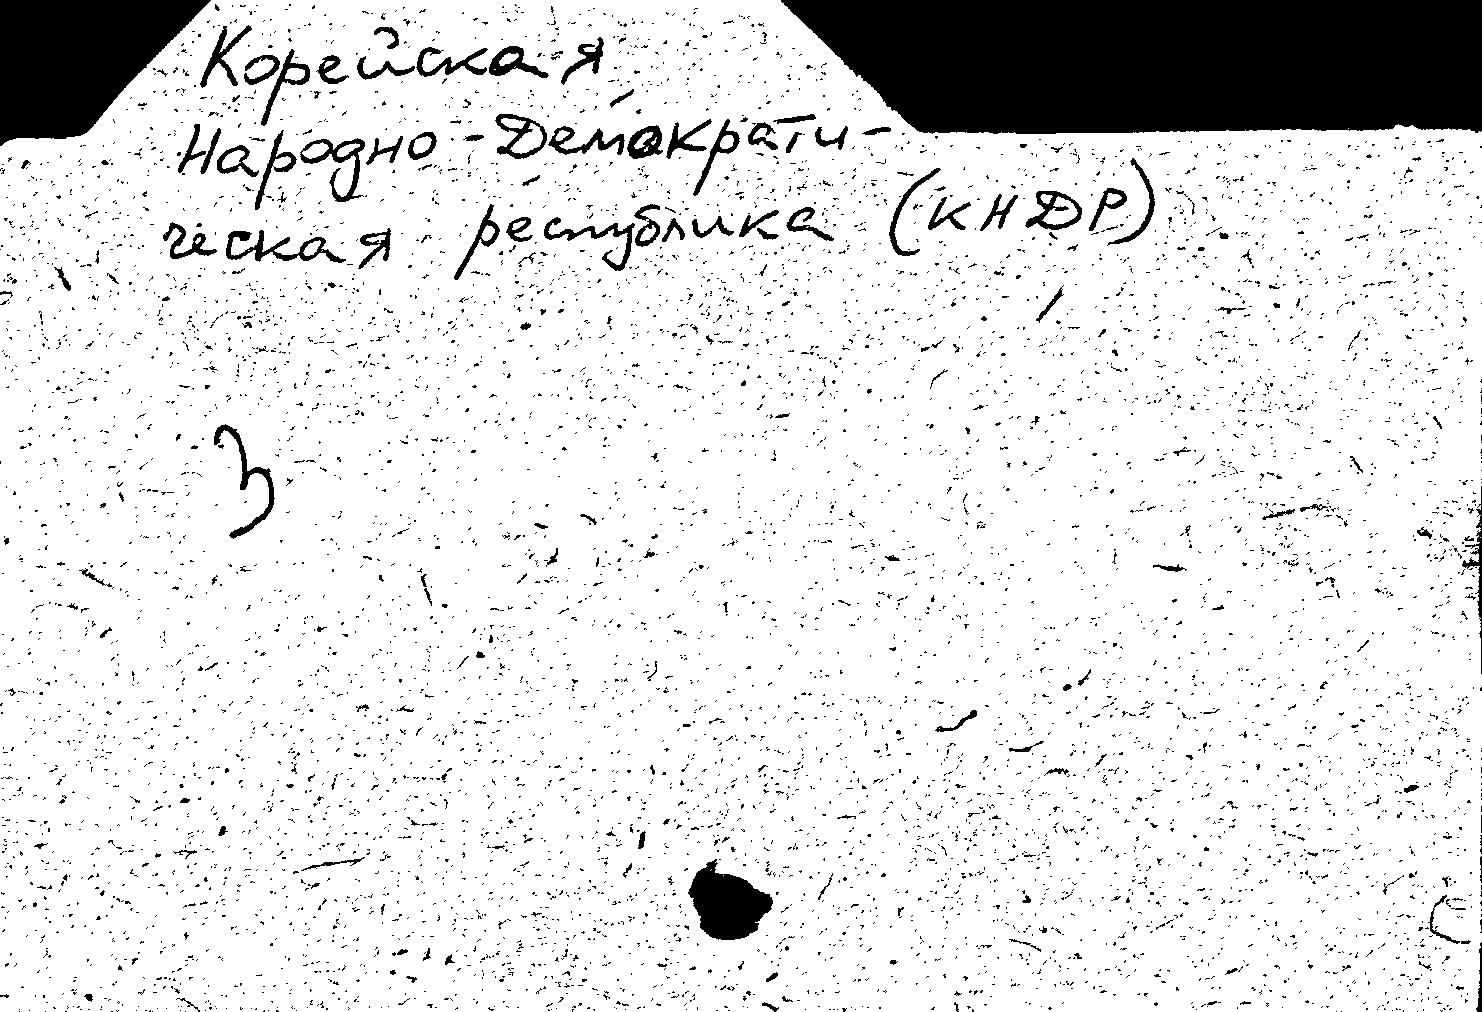 Корейская
Народно-Демократи-
ческая республика (КНДР)
З